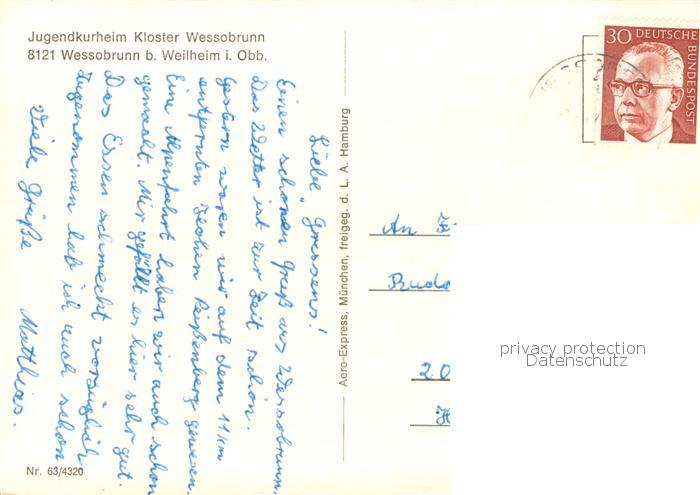 Jugendkurheim Kloster Wessobrunn
8121 Wessobrunn b. Weilheim i. Obb.
Liebe Grossens!
Einen schönen Gruß aus Wessobrunn.
Das Wetter ist zur Zeit schön.
Gestern waren wir auf dem 11 km
entfernten Hohen Peißenberg gewesen.
Eine Alpenfahrt haben wir auch schon
gemacht. Mir gefällt es hier sehr gut.
Das Essen schmeckt vorzüglich
zugenommen hab ich auch schon
Viele Grüße Matthias.
Nr. 63/4320
Aero-Express, München, freigeg. d. L. A. Hamburg
30 DEUTSCHE
BUNDESPOST
An
20
privacy protection
Datenschutz